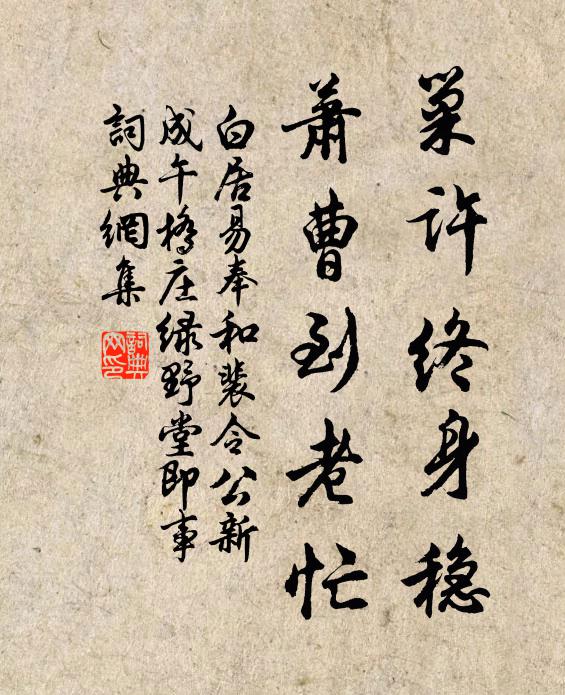 巢许终身稳
萧曹到老忙
白居易奉和裴令公新
成午橋庄绿野堂即事
詞典網集
詞典
网印